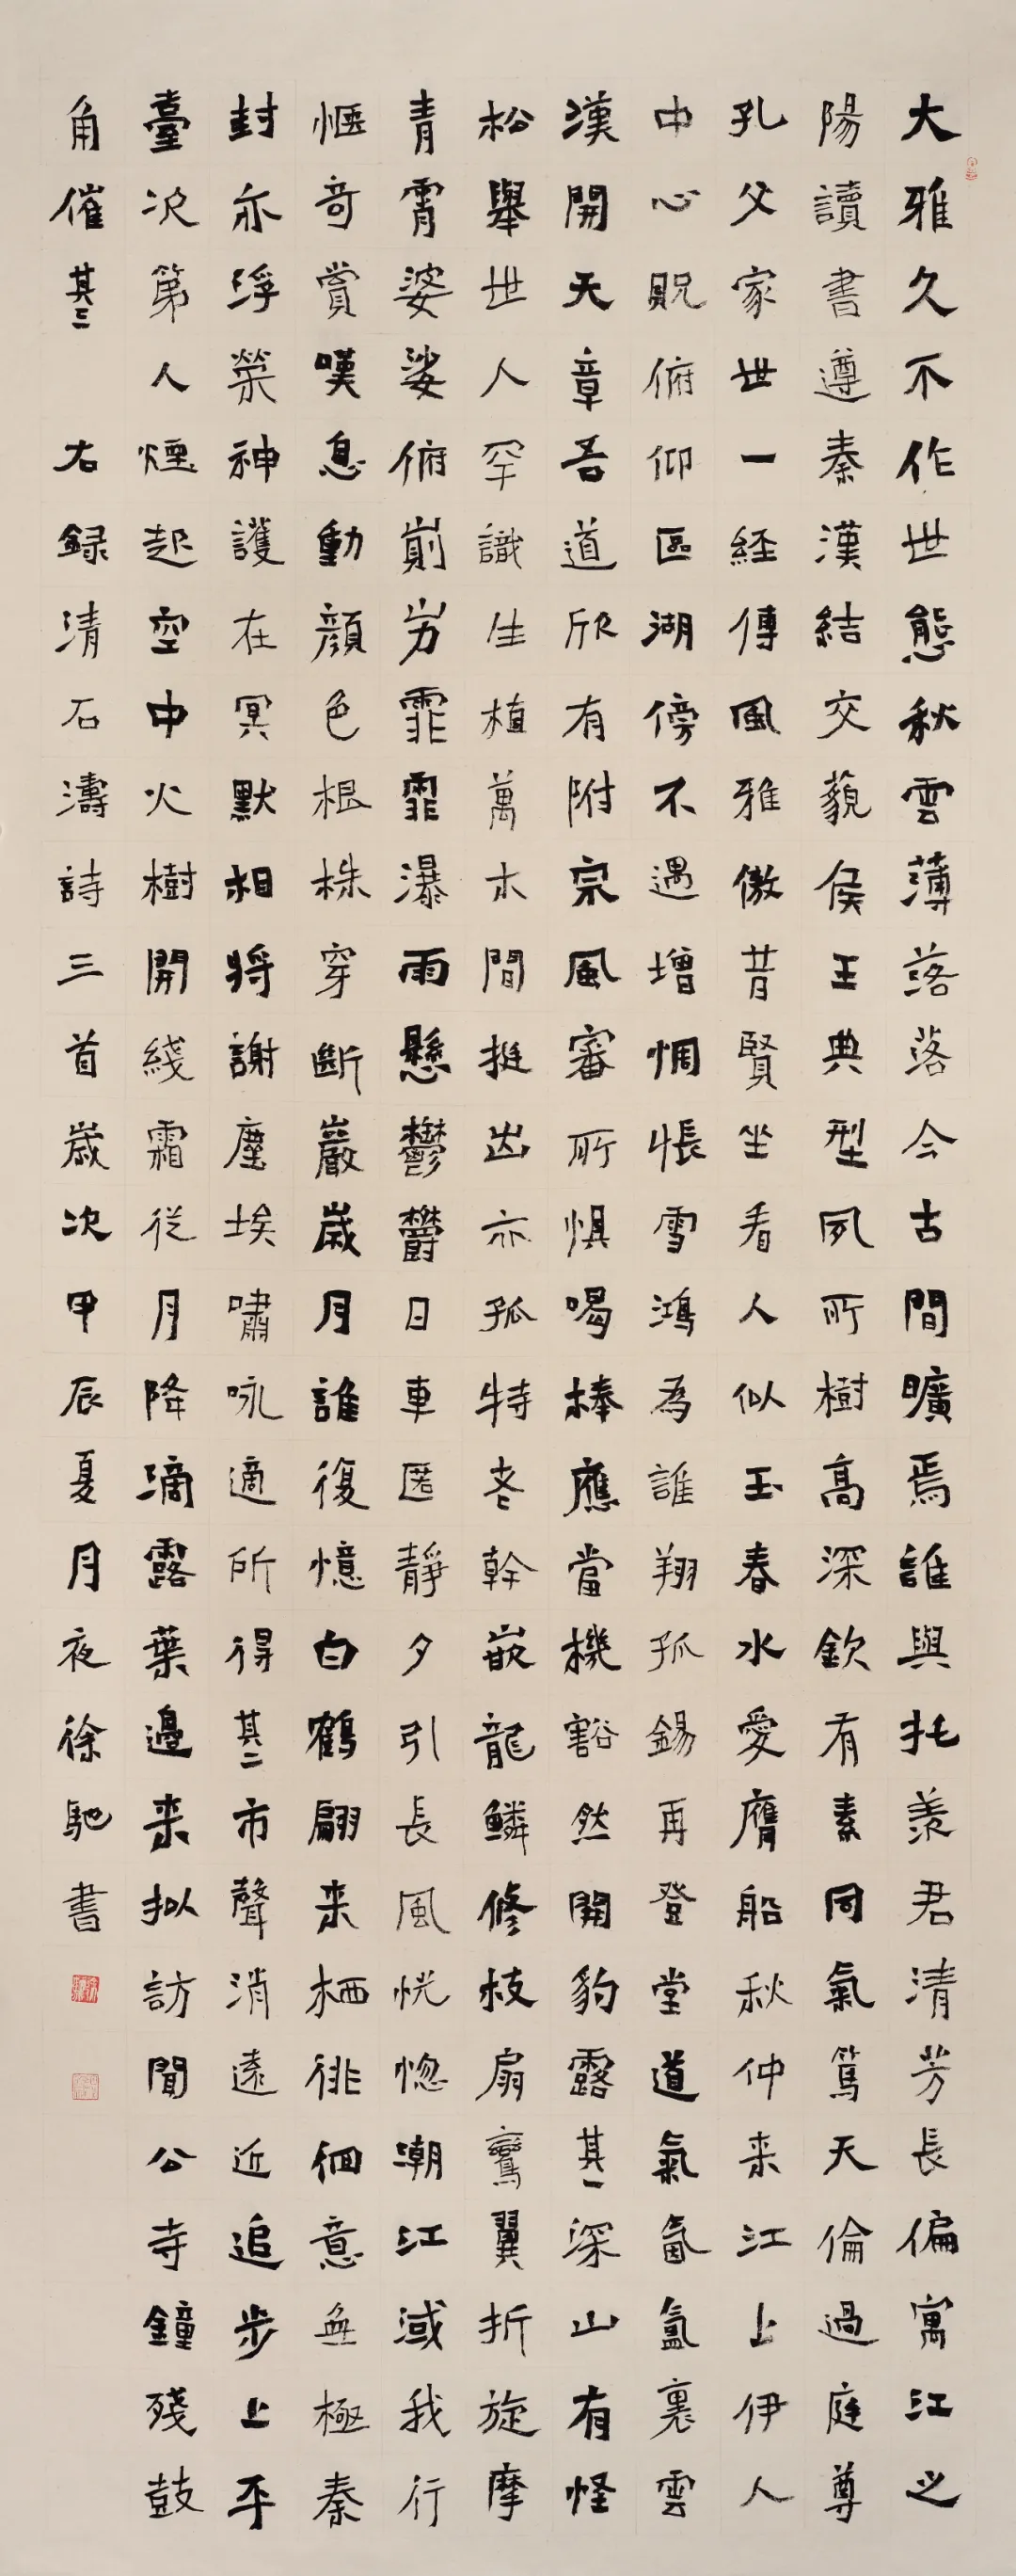 大雅久不作世態秋雲薄落落今古間曠焉誰與托羨君清芳長偏寓江之
陽讀書遵秦漢結交藐侯王典型夙所樹高深欽有素同氣篤天倫過庭尊
孔父家世一經傳風雅傲昔賢坐看人似玉春水愛膺船秋仲来江上伊人
中心貺俯仰區湖傍不遇增惆悵雪鴻為誰翔孤錫再登堂道氣氤氳裏雲
漢開天章吾道欣有附宗風審所惧喝棒應當機豁然開豹露其一深山有怪
松舉世人罕識生植萬木間挺出亦孤特老幹嵌龍鱗修枝扇鸞翼折旋摩
青霄婆娑俯前岃霏霏瀑雨懸鬱鬱日車匿靜夕引長風恍惚潮江域我行
愜奇賞嘆息動顔色根株穿斷巖歲月誰復憶白鶴翩来栖徘徊意無極秦
封亦浮榮神護在冥默相將謝塵埃嘯咏適所得其二市聲消遠近追步上平
臺次第人煙起空中火樹開綫霜從月降滴露葉邊来拟訪聞公寺鐘殘鼓
角催其三 右録清石濤詩三首歲次甲辰夏月夜徐馳書